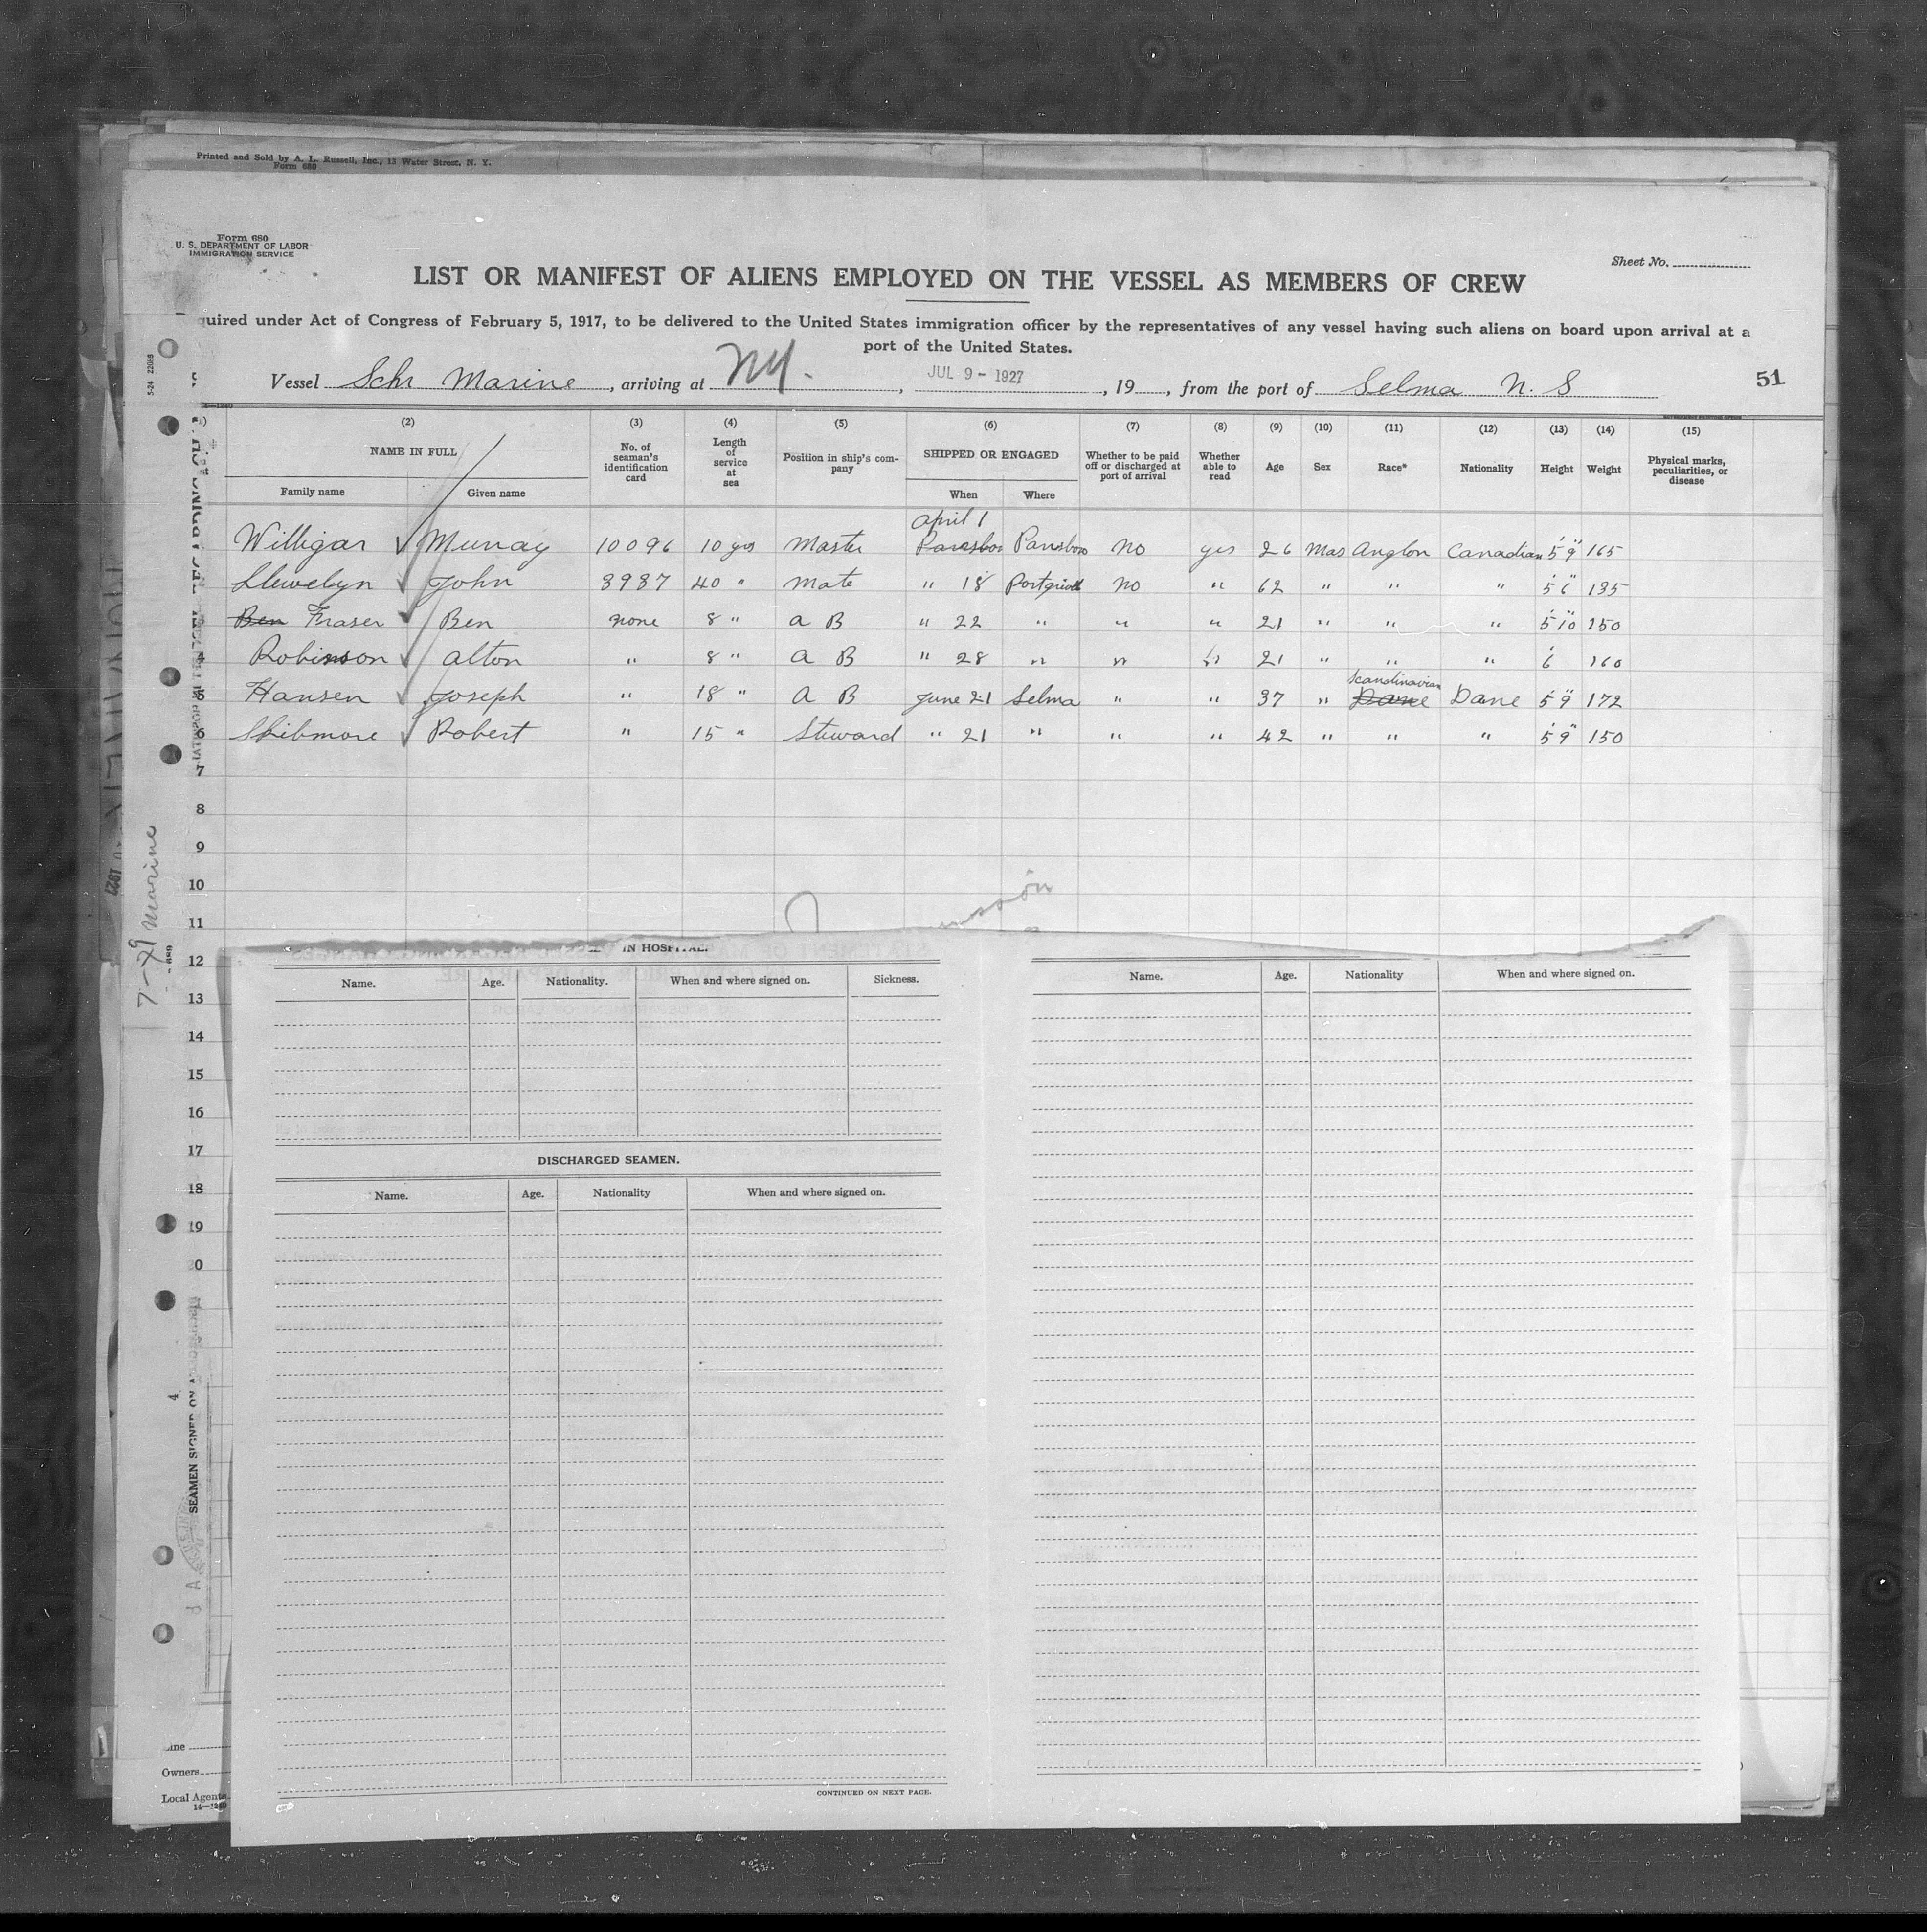 Printed and Sold by A. L. Russell, Inc., 13 Water Street, N. Y.
Form 680
Form 680
U. S. DEPARTMENT OF LABOR
IMMIGRATION SERVICE
Sheet No.
LIST OR MANIFEST OF ALIENS EMPLOYED ON THE VESSEL AS MEMBERS OF CREW
quired under Act of Congress of February 5, 1917, to be delivered to the United States immigration officer by the representatives of any vessel having such aliens on board upon arrival at a
port of the United States.
Vessel Schr Marine, arriving at NY., JUL 9 - 1927, 19, from the port of Selma N. S 51
(2) (3) (4) (5) (6) (7) (8) (9) (10) (11) (12) (13) (14) (15)
NAME IN FULL No. of seaman's identification card Length of service at sea Position in ship's company SHIPPED OR ENGAGED Whether to be paid off or discharged at port of arrival Whether able to read Age Sex Race* Nationality Height Weight Physical marks, peculiarities, or disease
Family name Given name When Where
april 1
Willigar Murray 10096 10 yrs Master Parrsboro Parrsboro no yes 26 Mas Anglon Canadian 5' 9" 165
Llewelyn John 3937 40 " Mate " 18 no " 62 " " " 5' 6" 135
Ben Fraser Ben none 8 " a B " 22 " " " 21 " " " 5' 10" 150
4 Robinson Alton " 8 " a B " 28 " " " 21 " " " 6' 160
Scandinavian
5 Hansen Joseph " 18 " a B June 21 Selma " " 37 " Dane Dane 5 9" 172
6 Skibmore Robert " 15 " Steward " 21 " " " 42 " " " 5' 9" 150
7
8
9
10
11
12
13
14
15
16
17
18
19
0
7-29 Marine
IN HOSPITAL.
Name. Age. Nationality. When and where signed on. Sickness.
DISCHARGED SEAMEN.
Name. Age. Nationality When and where signed on.
CONTINUED ON NEXT PAGE.
Name. Age. Nationality When and where signed on.
SEAMEN SIGNED ON
Owners
Local Agents